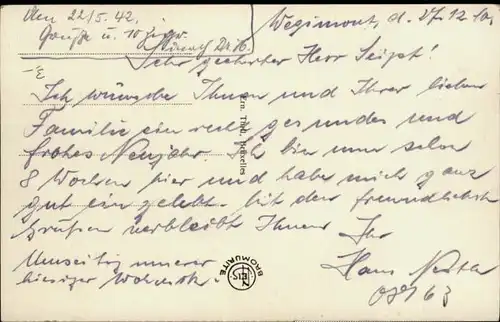 22/5. 42.
Grüße u. 10
Wégimont, d. 27.12.40.
Sehr geehrter Herr Seipt!
Ich wünsche Ihnen und Ihrer lieben
Familie ein recht gesundes und
frohes Neujahr. Ich bin nun schon
8 Wochen hier und habe mich ganz
gut ein gelebt. Mit den freundlichsten
Grüßen verbleibt Ihnen Ihr
Hans
Umseitig unserer
hiesiger
Ern. Thill, Bruxelles
BROMURITE